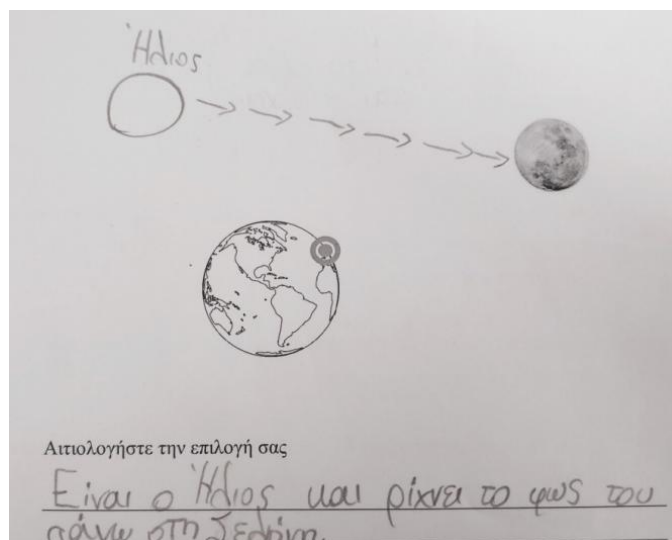 Ήλιος
Αιτιολογήστε την επιλογή σας
Είναι ο Ήλιος και ρίχνει το φως του
πάνω στη Σελήνη.